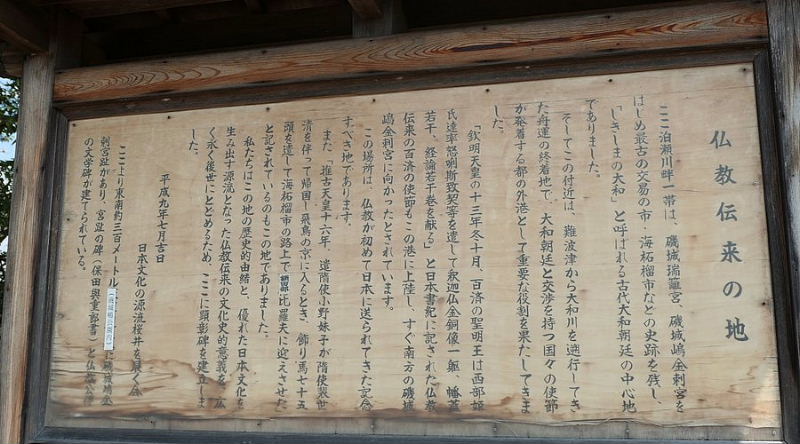 仏教伝来の地
ここ泊瀬川畔一帯は、磯城瑞籬宮、磯城嶋金刺宮を
はじめ最古の交易の市・海柘榴市などの史跡を残し、
「しきしまの大和」と呼ばれる古代大和朝廷の中心地
でありました。
そしてこの付近は、難波津から大和川を遡行してき
た舟運の終着地で、大和朝廷と交渉を持つ国々の使節
が発着する都の外港として重要な役割を果たしてきま
した。
「欽明天皇の十三年冬十月、百済の聖明王は西部姫
氏達率怒唎斯致契等を遣して釈迦仏金銅像一軀、幡蓋
若干、経論若干巻を献る」と日本書紀に記された仏教
伝来の百済の使節もこの港に上陸し、すぐ南方の磯城
嶋金刺宮に向かったとされています。
この場所は、仏教が初めて日本に送られてきた記念
すべき地であります。
また「推古天皇十六年、遣隋使小野妹子が隋使裴世
清を伴って帰国し飛鳥の京に入るとき、飾り馬七十五
頭を遣して海柘榴市の路上で額田部比羅夫に迎えさせた
と記されているのもこの地でありました。
私たちはこの地の歴史的由緒と、優れた日本文化を
生み出す源流となった仏教伝来の文化史的意義を、広
く永く後世にとどめるため、ここに顕彰碑を建立しま
した。
平成九年七月吉日
日本文化の源流桜井を展く会
ここより東南約三百メートル
に磯城嶋金
刺宮趾があり、宮趾の碑(保田與重郎書)と仏
の文学碑が建てられている。